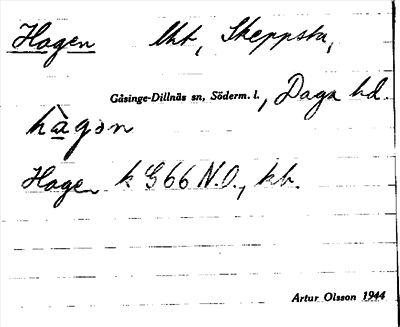 Hagen lht, Skeppsta,
Gåsinge-Dillnäs sn, Söderm. l., Daga hd.
hà̱gən
Hagen k. G66 N.O., kb.
Artur Olsson 1944